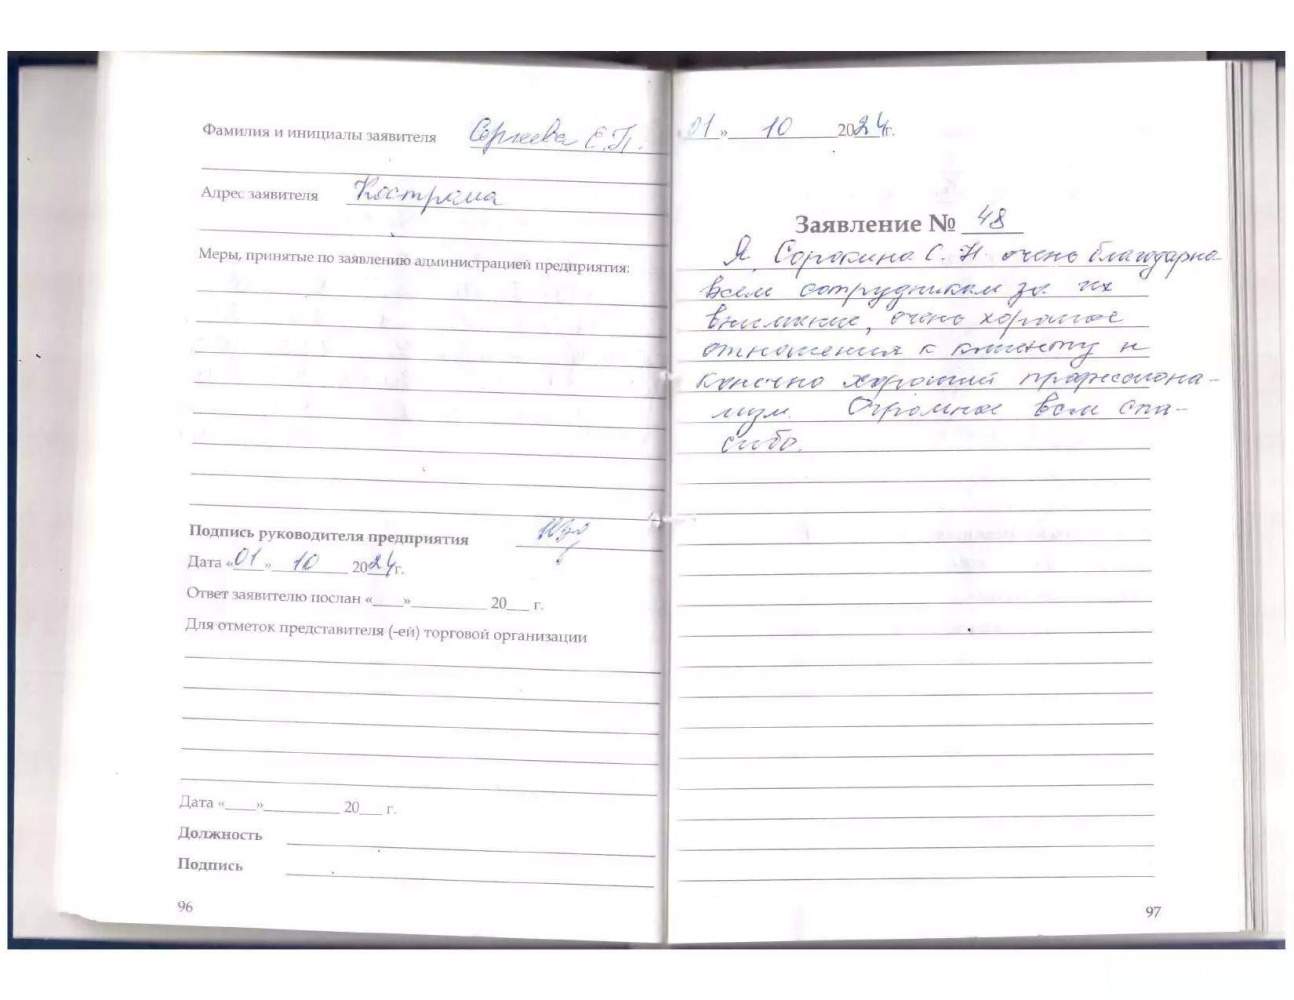 Фамилия и инициалы заявителя Сергеева Е.П.
Адрес заявителя Кострома
Меры, принятые по заявлению администрацией предприятия:
Подпись руководителя предприятия
Дата «01» 10 2024г.
Ответ заявителю послан «____»__________ 20___ г.
Для отметок представителя (-ей) торговой организации
Дата «____»__________ 20___ г.
Должность
Подпись
96
01 » 10 2024г.
Заявление № 48
Я Сорокина С. Н. очень благодарна
всем сотрудникам за их
внимание, очень хорошее
отношения к клиенту и
конечно хороший профессиона-
лизм. Огромное всем спа-
сибо.
97